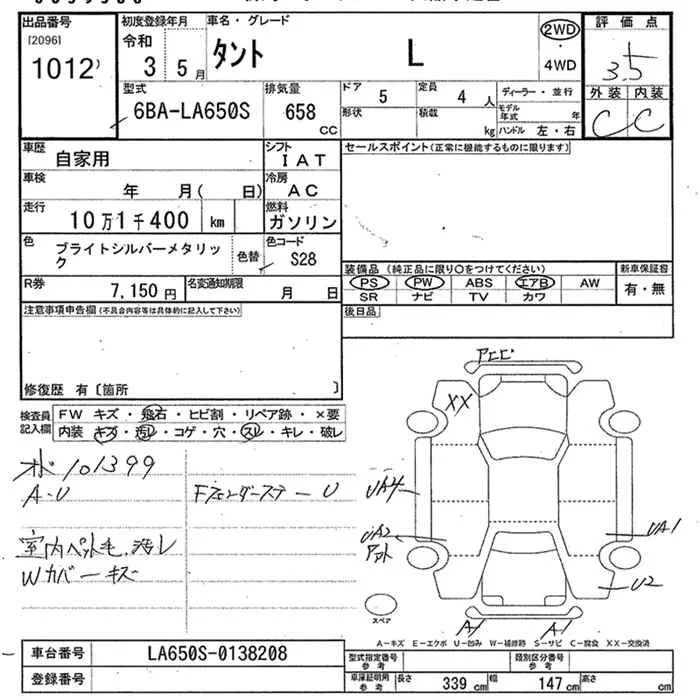 出品番号
[2096]
1012
初度登録年月
令和
3 5月
車名・グレード
タント L
2WD
・
4WD
評価点
3.5
外装 内装
C C
型式
6BA-LA650S
排気量
658
CC
ドア
5
定員
4 人
形状
積載
kg
ディーラー・並行
モデル年式 年
ハンドル 左・右
車歴
自家用
シフト
IAT
セールスポイント(正常に機能するものに限ります)
車検
年 月( 日)
冷房
AC
走行
10万1千400 km
燃料
ガソリン
色
ブライトシルバーメタリック
色替
色コード
S28
装備品(純正品に限り○をつけてください)
PS PW ABS エアB AW
SR ナビ TV カワ
新車保証書
有・無
R券
7,150 円
名変通知期限
月 日
後日品
注意事項申告欄(不具合内容等は具体的に記入して下さい)
修復歴 有〔箇所 〕
検査員記入欄
FW キズ・飛石・ヒビ割・リペア跡・×要
内装 キズ・汚レ・コゲ・穴・スレ・キレ・破レ
101399
A・U
Fフェンダーステ-U
室内ペット毛、汚レ
Wカバーキズ
XX
UA4
UA2
UA1
U2
A1
A1
スペア
A-キズ E-エクボ U-凹み W-補修跡 S-サビ C-腐食 XX-交換済
車台番号
LA650S-0138208
登録番号
型式指定番号
参考
類別区分番号
参考
車庫証明用
参考
長さ
339 cm
幅
147 cm
高さ
cm